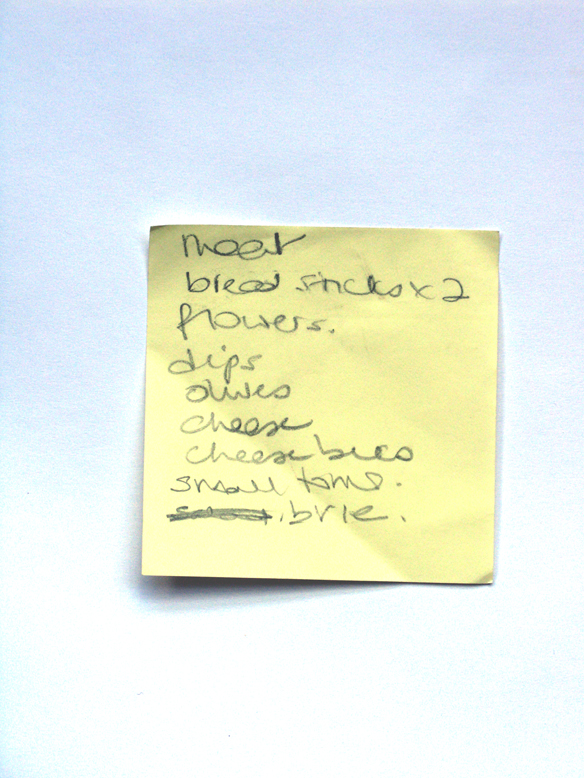 meat
bread sticks x 2
flowers.
dips
olives
cheese
cheese bics
small toms.
brie.